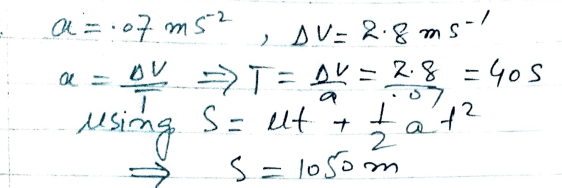 a = .07 ms⁻² , ΔV = 2.8 ms⁻¹
a = ΔV/T ⇒ T = ΔV/a = 2.8/.07 = 40s
using S = ut + 1/2 at²
⇒ S = 1050m